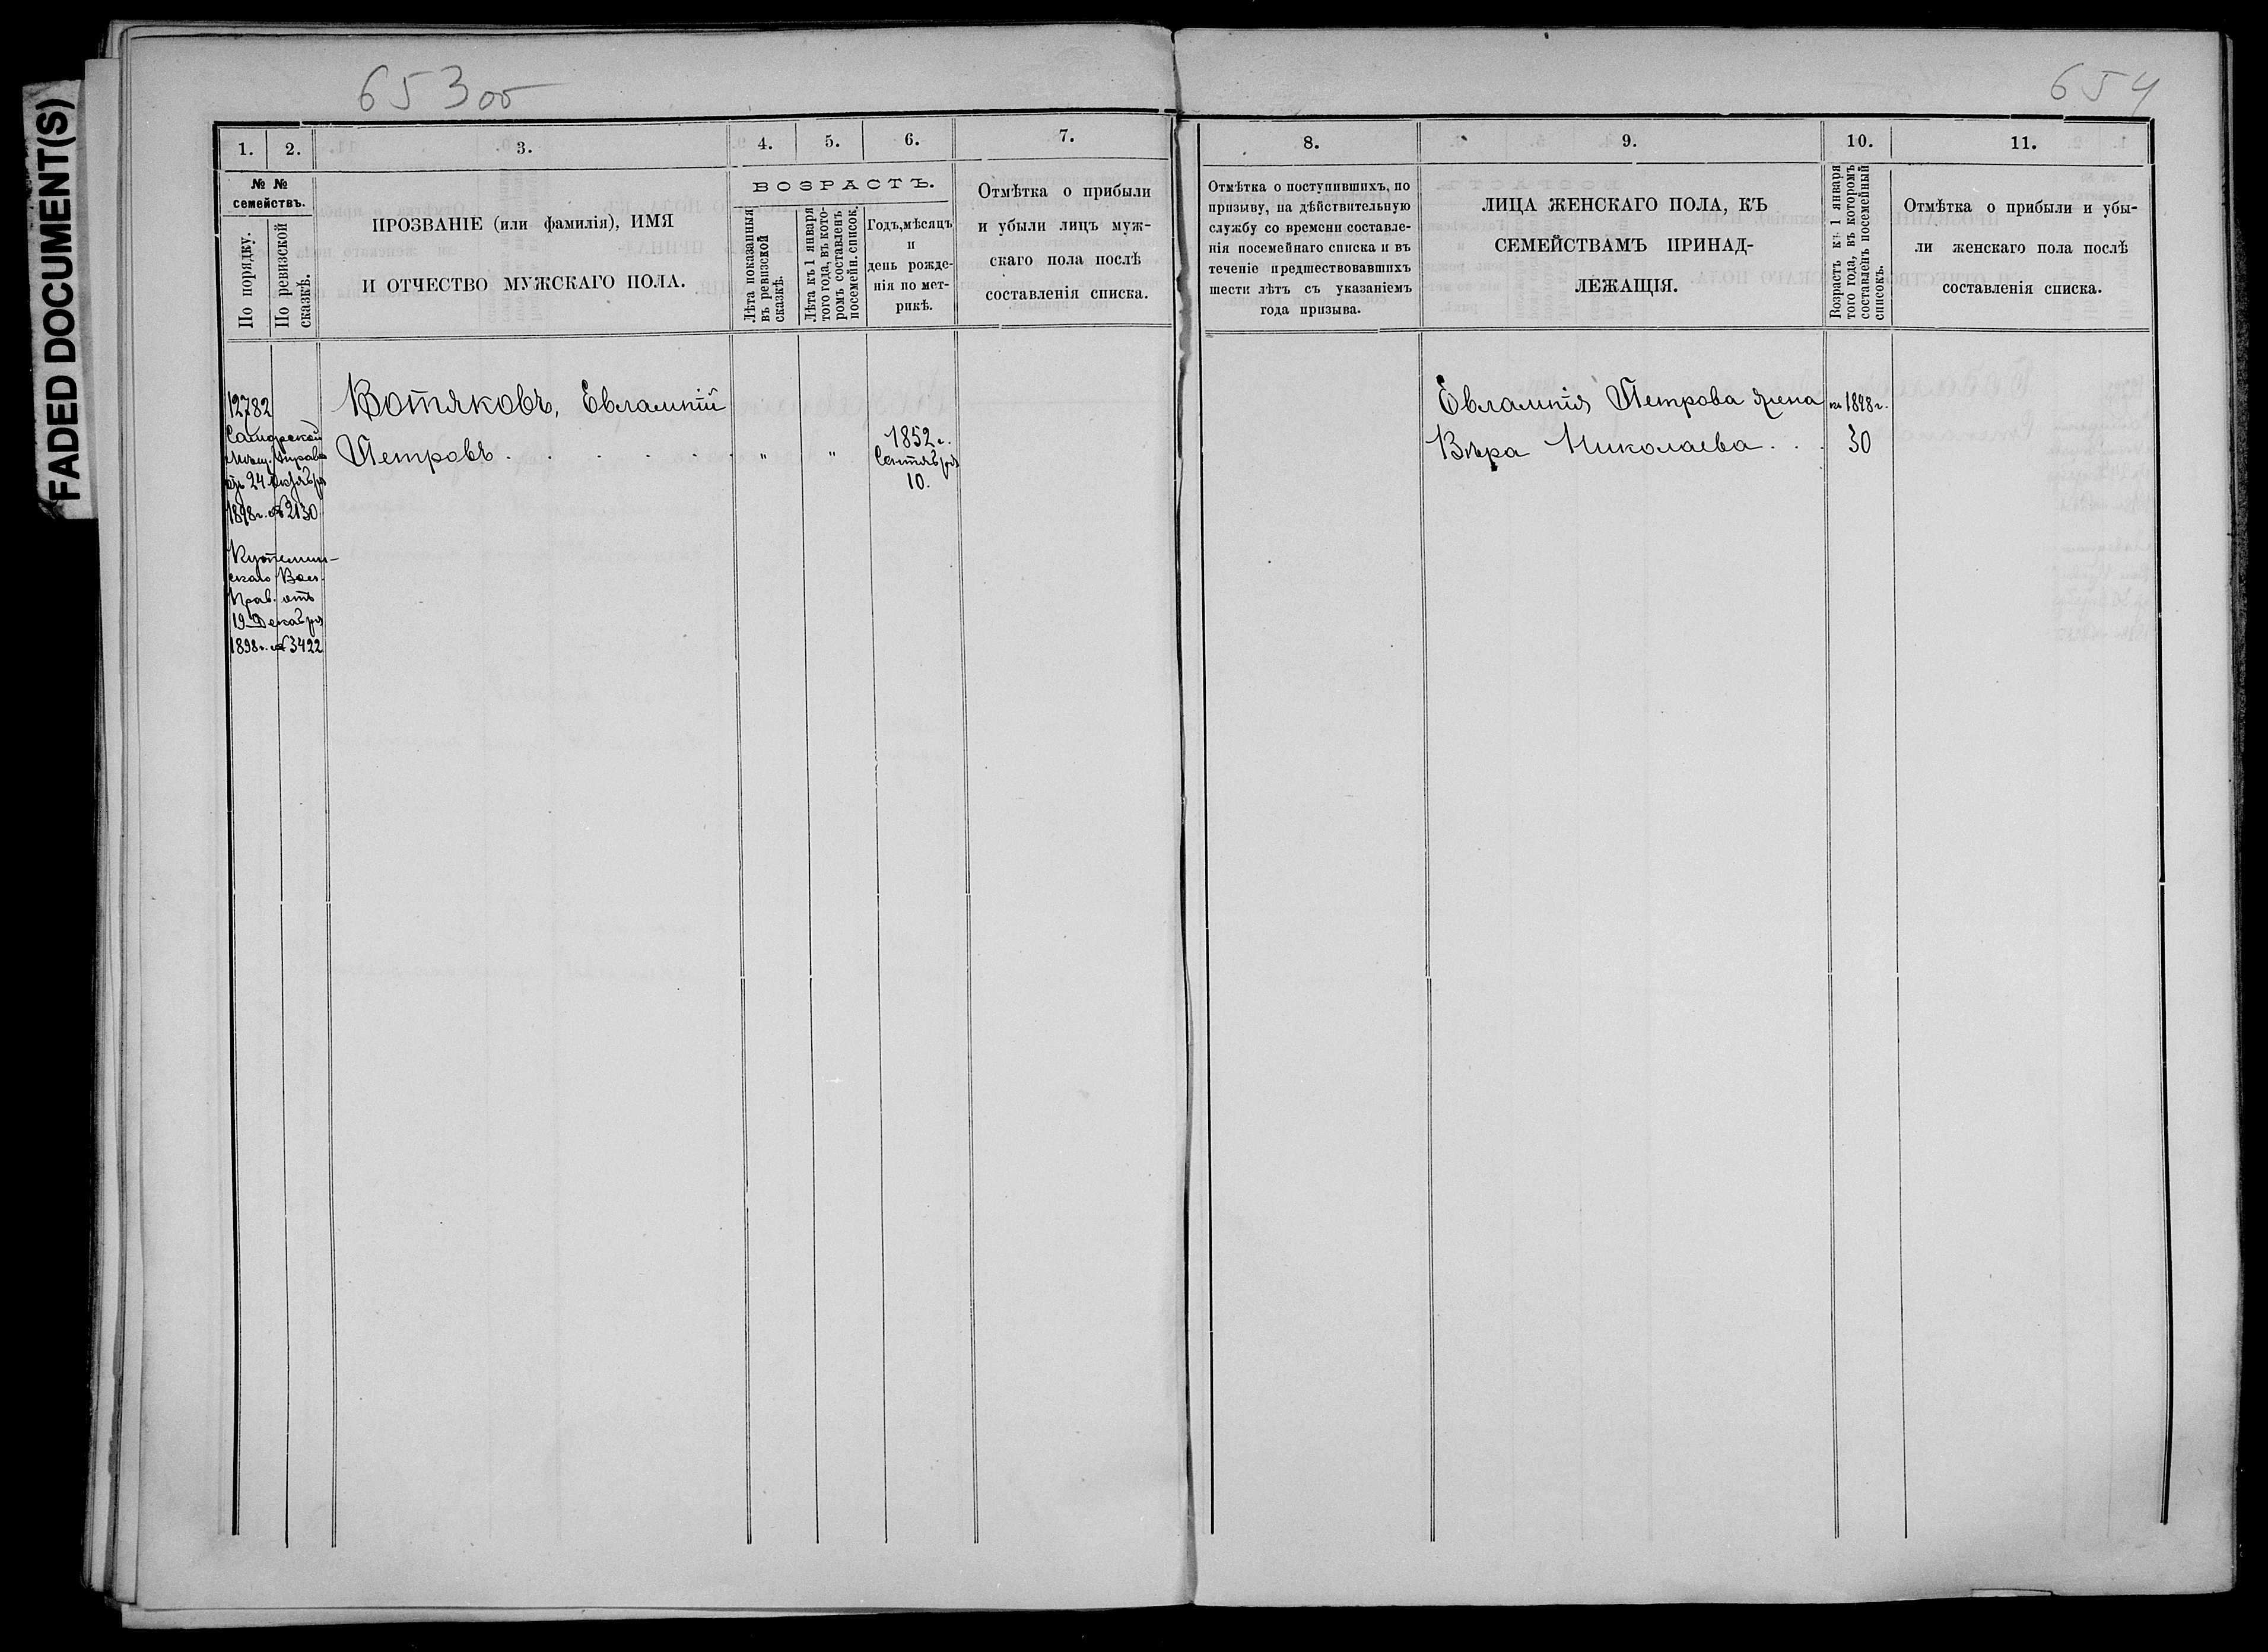 FADED DOCUMENT(S)
653об
654
1.
2.
3.
4.
5.
6.
7.
8.
9.
10.
11.
№ №
семействъ.
По порядку.
По ревизской
сказкѣ.
ПРОЗВАНІЕ (или фамилія), ИМЯ
И ОТЧЕСТВО МУЖСКАГО ПОЛА.
ВОЗРАСТЪ.
Лѣта показанныя
въ ревизской
сказкѣ.
Лѣта къ 1 января
того года, въ кото-
ромъ составленъ
посемейн. список.
Годъ, мѣсяцъ
и
день рожде-
нія по мет-
рикѣ.
Отмѣтка о прибыли
и убыли лицъ муж-
скаго пола послѣ
составленія списка.
Отмѣтка о поступившихъ, по
призыву, на дѣйствительную
службу со времени составле-
нія посемейнаго списка и въ
теченіе предшествовавшихъ
шести лѣтъ съ указаніемъ
года призыва.
ЛИЦА ЖЕНСКАГО ПОЛА, КЪ
СЕМЕЙСТВАМЪ ПРИНАД-
ЛЕЖАЩІЯ.
Возрастъ къ 1 января
того года, въ которомъ
составленъ посемейный
списокъ.
Отмѣтка о прибыли и убы-
ли женскаго пола послѣ
составленія списка.
12782
Самарской
Мѣщ. Управы
отъ 24 Октября
1898 г. № 2130
скаго Вол.
Прав. отъ
19 Декабря
1898 г. № 3422
Вотяковъ, Евлампій
Петровъ . . . . . . „ „
1852 г.
Сентября
10.
Евлампія Петрова жена къ 1898 г.
Вѣра Николаева . . . 30